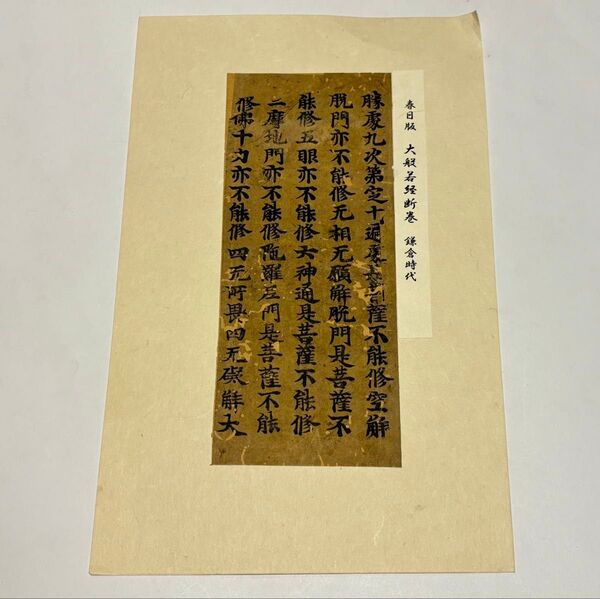 春日版 大般若経断巻 鎌倉時代
勝處九次第定十遍處是菩薩不能修空解
脱門亦不能修无相无願解脱門是菩薩不
能修五眼亦不能修六神通是菩薩不能修
三摩地門亦不能修陁羅尼門是菩薩不能
修佛十力亦不能修四无所畏四无礙解大